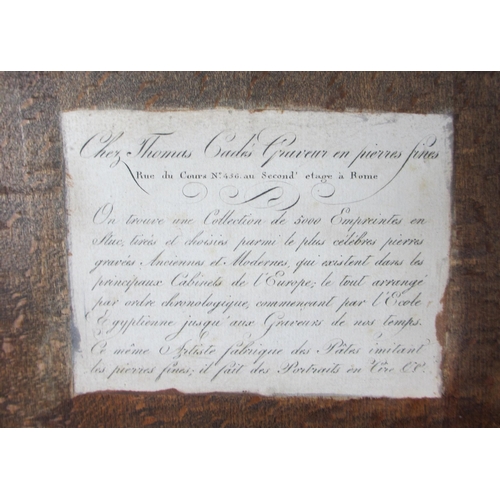 Chez Thomas Cades Graveur en pierres fines
Rue du Cours Nº 456. au Second' etage à Rome
On trouve une Collection de 5000 Empreintes en
Stuc, tirés et choisies parmi le plus célébres pierres
gravées Anciennes et Modernes, qui existent dans les
principaux Cabinets de l'Europe; le tout arrangé
par ordre chronologique, commençant par l'Ecole
Egyptienne jusqu'aux Graveurs de nos temps.
Ce même Artiste fabrique des Pâtes imitant
les pierres fines; il fait des Portraits en Cire &c.